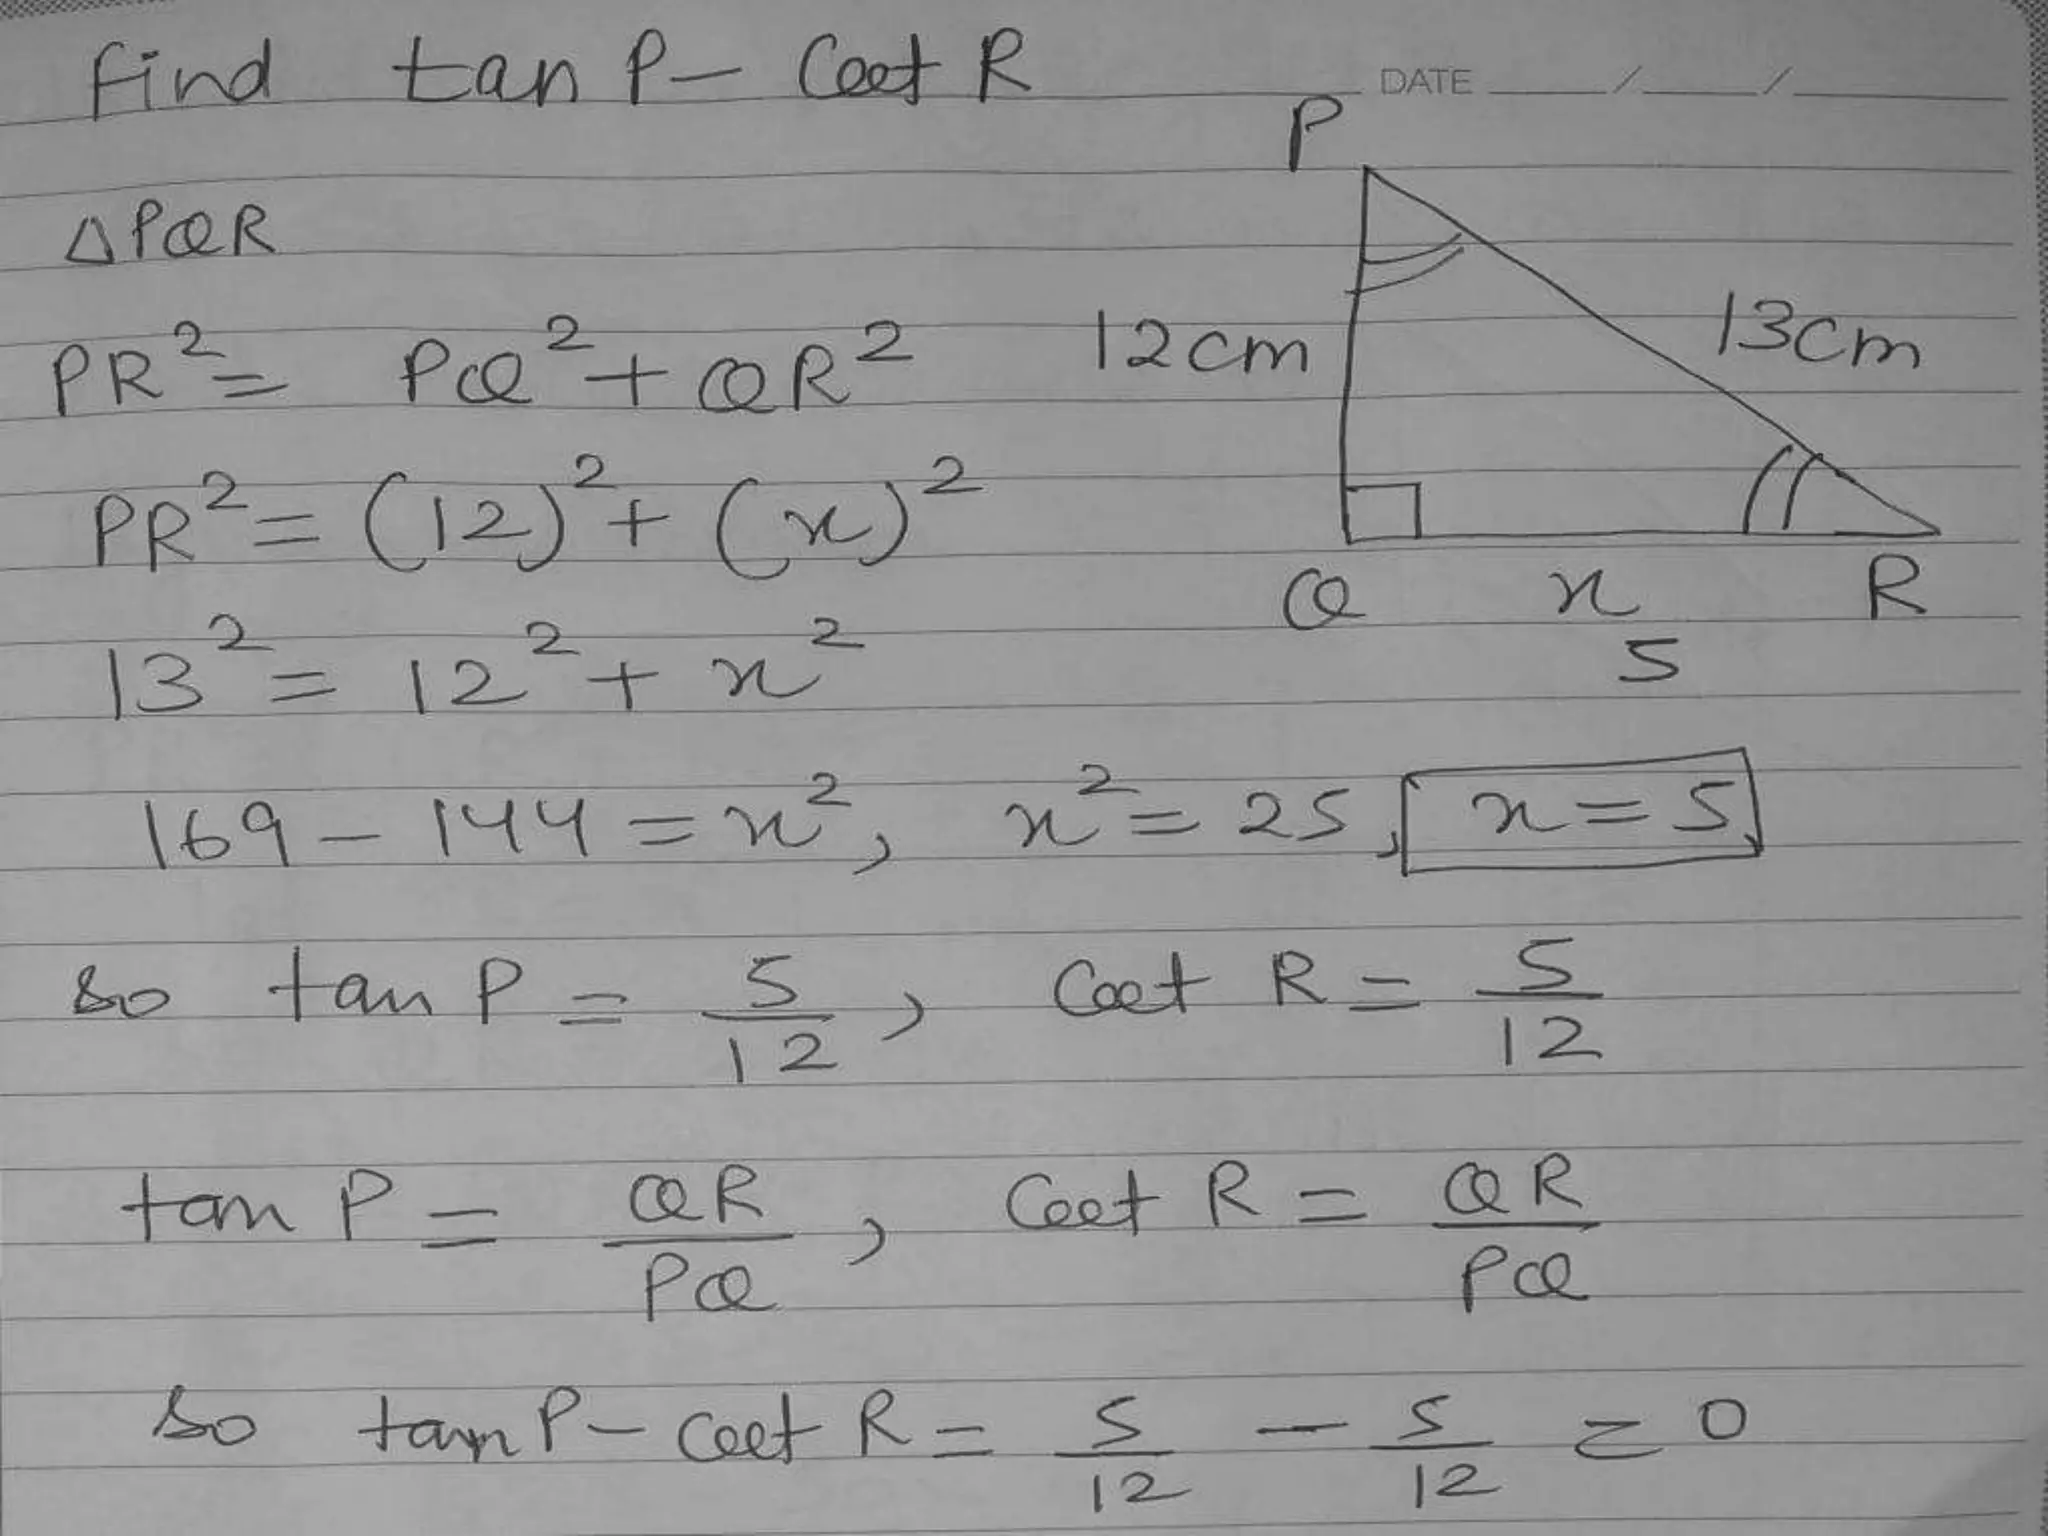 find tan P - Cot R
DATE __/__/__
P
△PQR
PR² = PQ² + QR²
12cm
13cm
PR² = (12)² + (x)²
Q
x
R
5
13² = 12² + x²
169 - 144 = x², x² = 25, x = 5
so tan P = 5/12, Cot R = 5/12
tan P = QR/PQ, Cot R = QR/PQ
so tan P - Cot R = 5/12 - 5/12 = 0